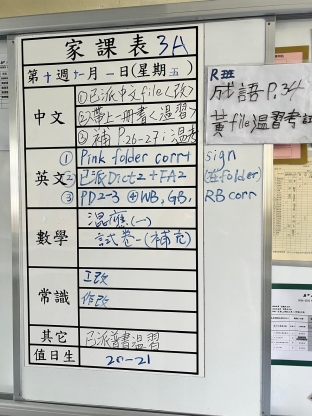 家課表 3A
第十週十一月一日(星期五)
中文
①已派中文file(改)
②帶上一册書溫習
③補P.26-27i溫書
R班
成語P.34
黃file溫習考試
英文
① Pink folder corr+ sign
② 已派Dict2+FA2 (在folder)
③ PD2-3 ④WB, GB, RB corr
數學
混應(一)
試卷一(補充)
常識
工改
作改
其它
已派普書溫習
值日生
20-21